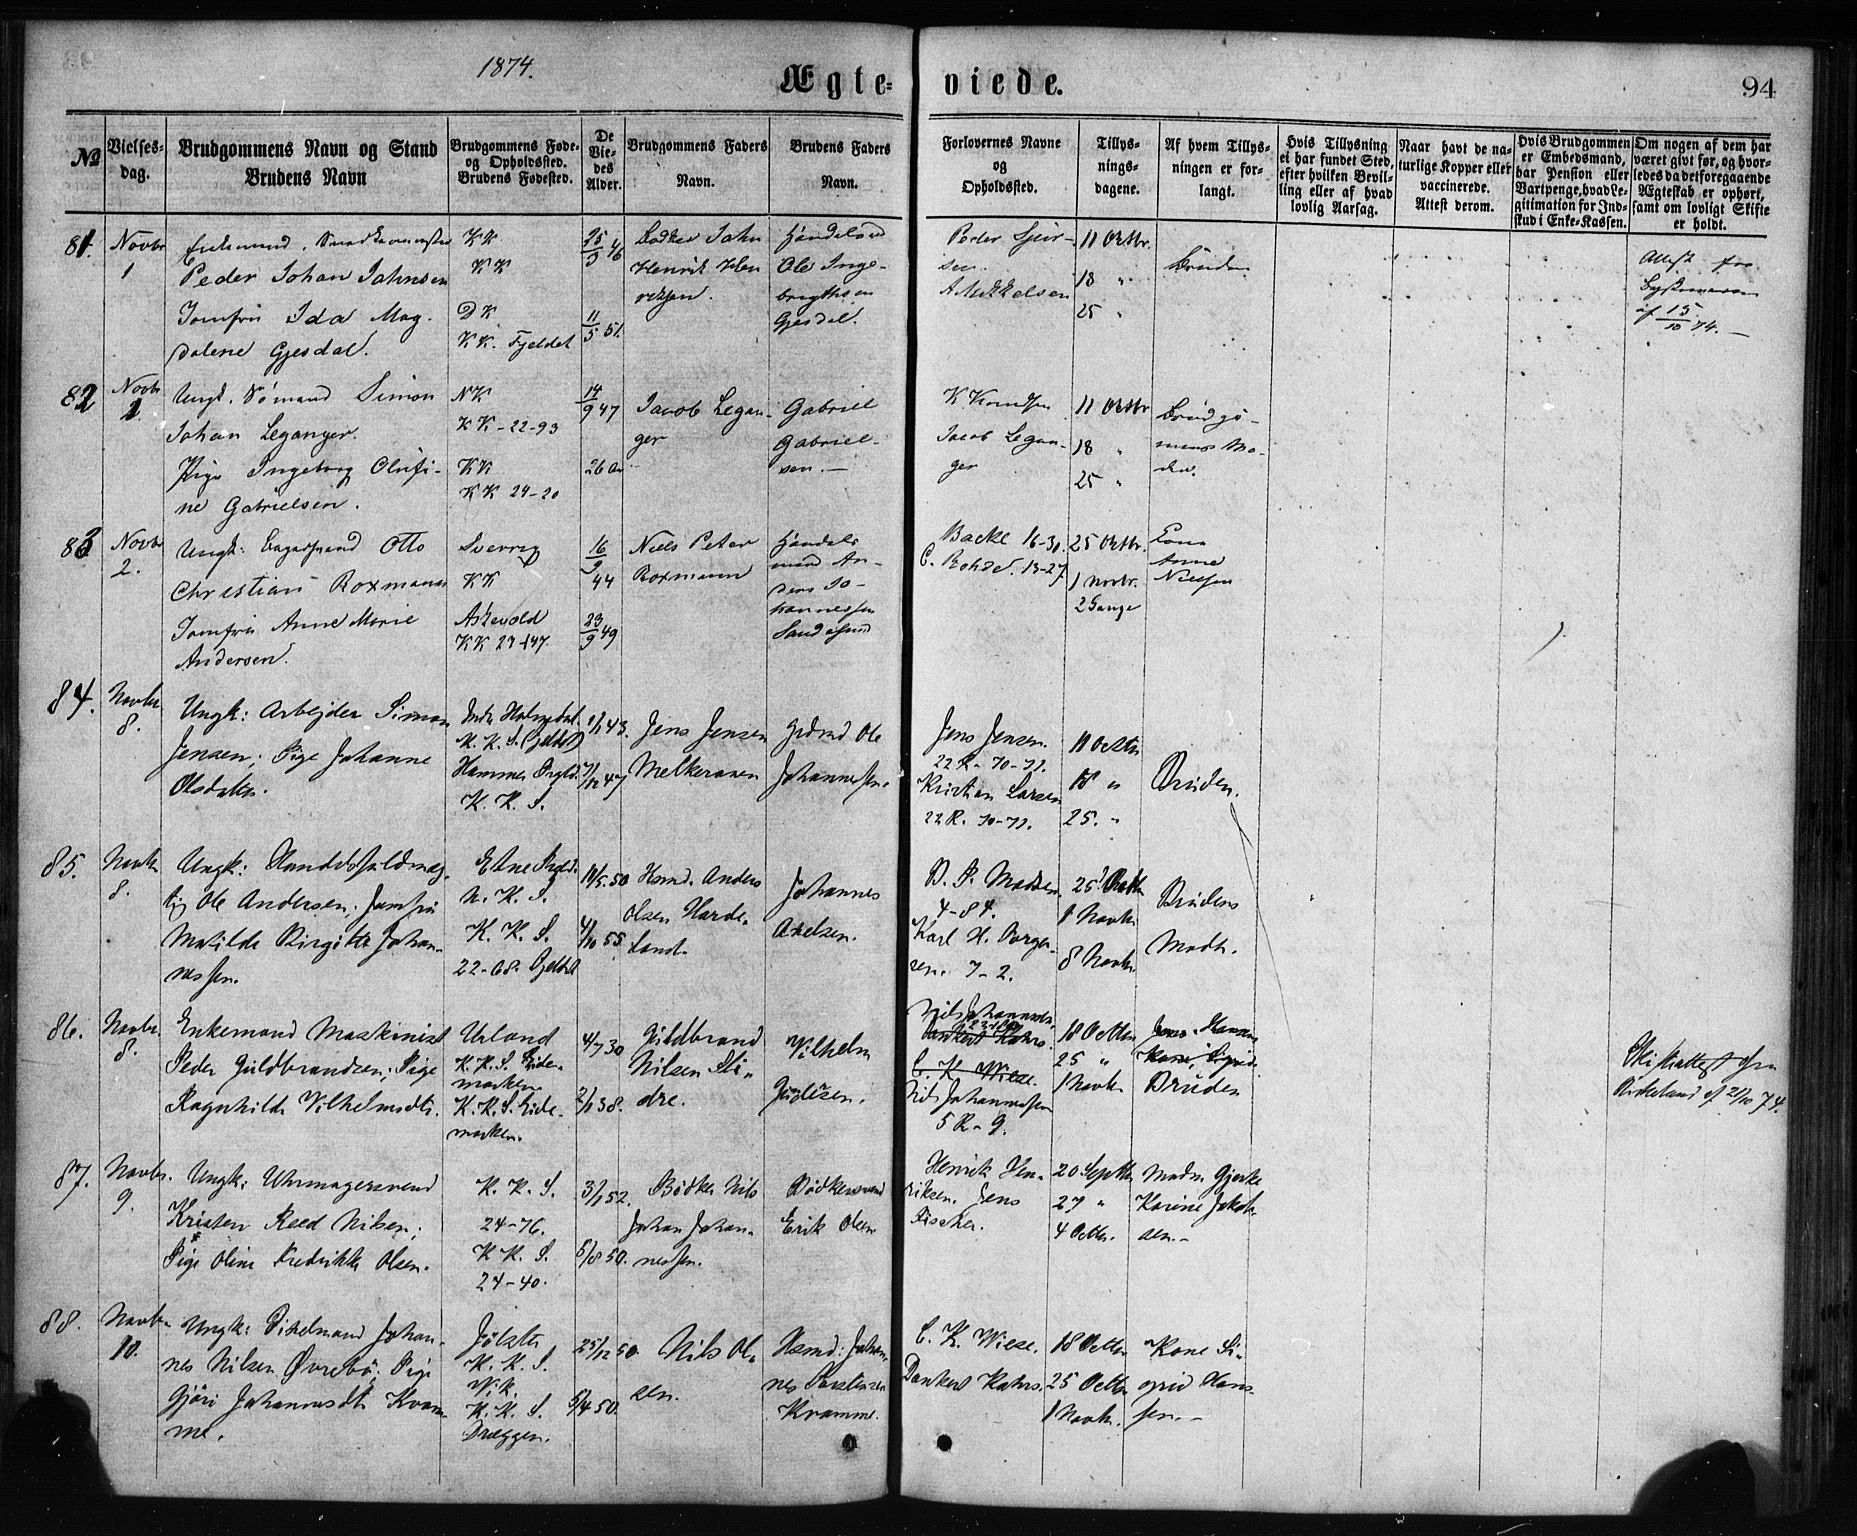 1874.
Ægte-
viede.
94
No
Vielses-
dag.
Brudgommens Navn og Stand
Brudens Navn
Brudgommens Føde-
og Opholdssted.
Brudens Fødested.
De
Vie-
des
Alder.
Brudgommens Faders
Navn.
Brudens Faders
Navn.
Forlovernes Navne
og
Opholdssted.
Tillys-
nings-
dagene.
Af hvem Tillys-
ningen er for-
langt.
Hvis Tillysning
ei har fundet Sted,
efter hvilken Bevil-
ling eller af hvad
lovlig Aarsag.
Naar havt de na-
turlige Kopper eller
vaccinerede.
Attest derom.
Hvis Brudgommen
er Embedsmand,
har Pension eller
Vartpenge, hvad Le-
gitimation for Ind-
skud i Enke-Kassen.
Om nogen af dem har
været givt før, og hvor-
ledes da det foregaaende
Ægteskab er ophørt,
samt om lovligt Skifte
er holdt.
81.
Novbr
1
Enkemand,
Peder Johan Jahnsen
Jomfru Ida Mag-
dalene Gjesdal.
KK
KK
DK
KK. Fjeldet
25/9 46
11/5 51.
Bødker Jahn
Henrik Hen
riksen.
Ole Inge-
brigthsen
Gjesdal.
Peder
A Mikkelsen
11 Octbr.
18 "
25 "
Bruden
Attest fra
af 15/10 74. —
82
Novbr
1.
Ungk. Sømand Simon
Johan Leganger.
Pige Ingeborg Olufi-
ne Gabrielsen.
NK
KK - 22-93
KK
KK 24-20
14/9 47
26 Aar
Jacob Legan-
ger
Gabriel
Gabriel-
sen. —
K Knudsen
Jacob Legan-
ger
11 Octbr
18 "
25 "
Brudgo-
mens Mo-
der.
83
Novbr
2.
Ungk: Otto
Christian Boxmann
Jomfru Anne Marie
Andersen.
Sverrig
KK
Askevold
KK 23-147.
16/9
44
23/9 49
Niels Peter
Boxmann
Handels
mand An-
ders Jo-
hannessen
Sandøsund
Backe 16-30.
C. Rohde. 13-27.
25 Octbr.
1 Novbr.
2 Gange
Kone
Anne
Nielsen
84.
Novbr.
8.
Ungk: Arbejder Simon
Jensen; Pige Johanne
Olsdatter.
Indr Holmedal.
K. K. S. (Fjeldet)
Hammer Prgld.
K. K. S.
1/1 43.
7/12 47
Jens Jensen
Melkeraaen
Grdmd Ole
Johannessen.
Jens Jensen.
22 R. - 70-71.
Kristian Larsen
22 R. 70-71.
11 Octbr
18 "
25. "
Bruden.
85.
Novbr.
8.
Ungk: Handelsfuldmæg-
tig Ole Andersen; Jomfru
Matilde Birgitte Johan-
nessen.
Etne Prgld.
N. K. S.
K. K. S.
22-68. Fjeldet
11/5. 50
4/10 55.
Hsmd. Anders
Olsen Harde-
land.
Johannes
Axelsen.
B. P. Madsen.
4-84.
Karl H. Borge-
sen. 7-2.
25 Octbr
1 Novbr.
8 Novbr.
Brudens
Moder.
86.
Novbr.
8.
Enkemand Maskinist
Peder Guldbrandsen; Pige
Ragnhilde Vilhelmsdtr.
Urland
K. K. S. Side-
marken
K. K. S. Side-
marken.
4/7 30
2/1 38.
Guldbrand
Nilsen Sli-
dre.
Vilhelm
Nils Johannesen,
Dankert Kahrs.
C. K. Wiese.
Nils Johannesen
5 R - 9.
18 Octbr
25 "
1 Novbr.
Jens Hansens
Kone, Sigrid
Bruden
Skifteattest fra
Birkeland af 21/10 74.
87.
Novbr.
9.
Ungk: Uhrmagersvend
Kristen Reed Nilsen;
Pige Oline Fredrikke Olsen.
K. K. S.
24-76.
K K. S.
24-40.
3/1 52.
5/8 50.
Bødker Nils
Johan Johan-
nessen.
Bødkersvend
Erik Olsen
Henrik Hen-
riksen. Jens
Fischer.
20 Septbr
27 "
4 Octbr.
Madm Gjerke
Karine Jakob-
sen. -
88.
Novbr.
10.
Ungk: Johan-
nes Nilsen Øvrebø; Pige
Gjøri Johannesdtr Kvam-
me.
Jølster
K. K. S.
V.K.
K. K. S.
Dræggen.
25/12 50.
5/4 50.
Nils Ol-
sen.
Hsmd: Johan-
nes Torstensen
Kvamme.
C. K. Wiese.
Dankert Kahrs.
18 Octbr
25 Octbr
1 Novbr.
Kone Si-
grid Hans
sen. -